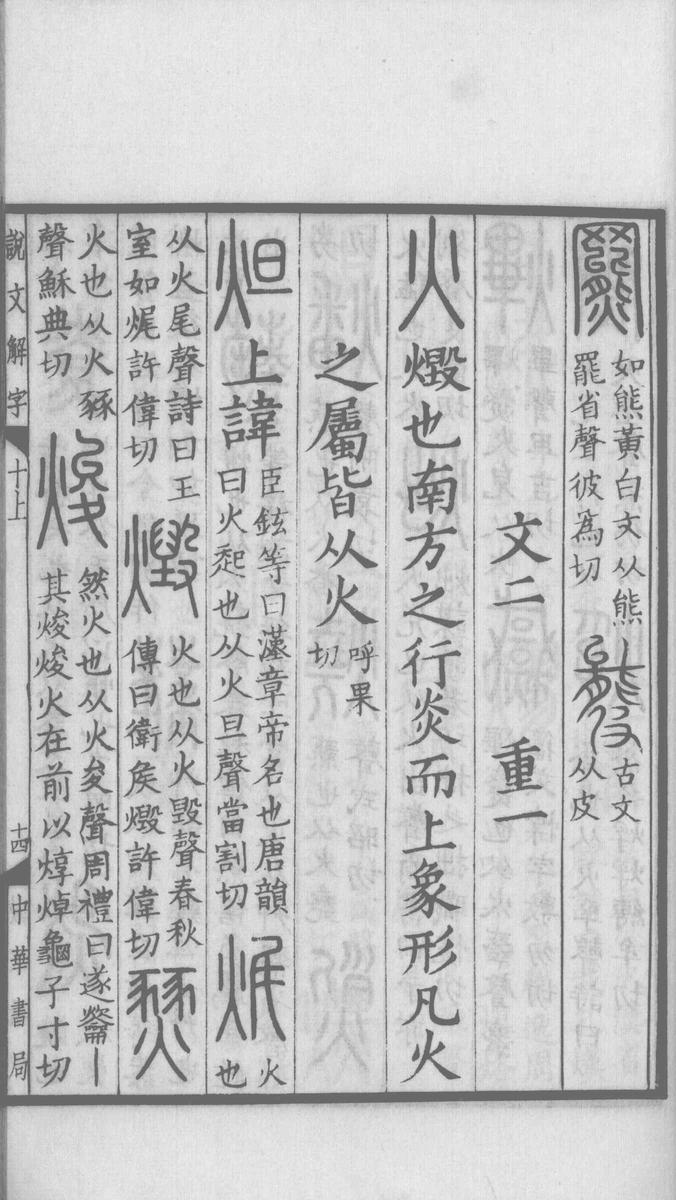 羆 如熊黃白文从熊
罷省聲彼爲切 古文
从皮
文二 重一
火 燬也南方之行炎而上象形凡火
之屬皆从火 呼果
切
炟 上諱 臣鉉等曰漢章帝名也唐韻
曰火起也从火旦聲當割切 㶬 火
也
从火尾聲詩曰王
室如㶬許偉切 燬 火也从火毀聲春秋
傳曰衛矦燬許偉切 燹
火也从火豩
聲穌典切 焌 然火也从火夋聲周禮曰遂龡
其焌焌火在前以焞焯龜子寸切
說文解字 十上 十四 中華書局